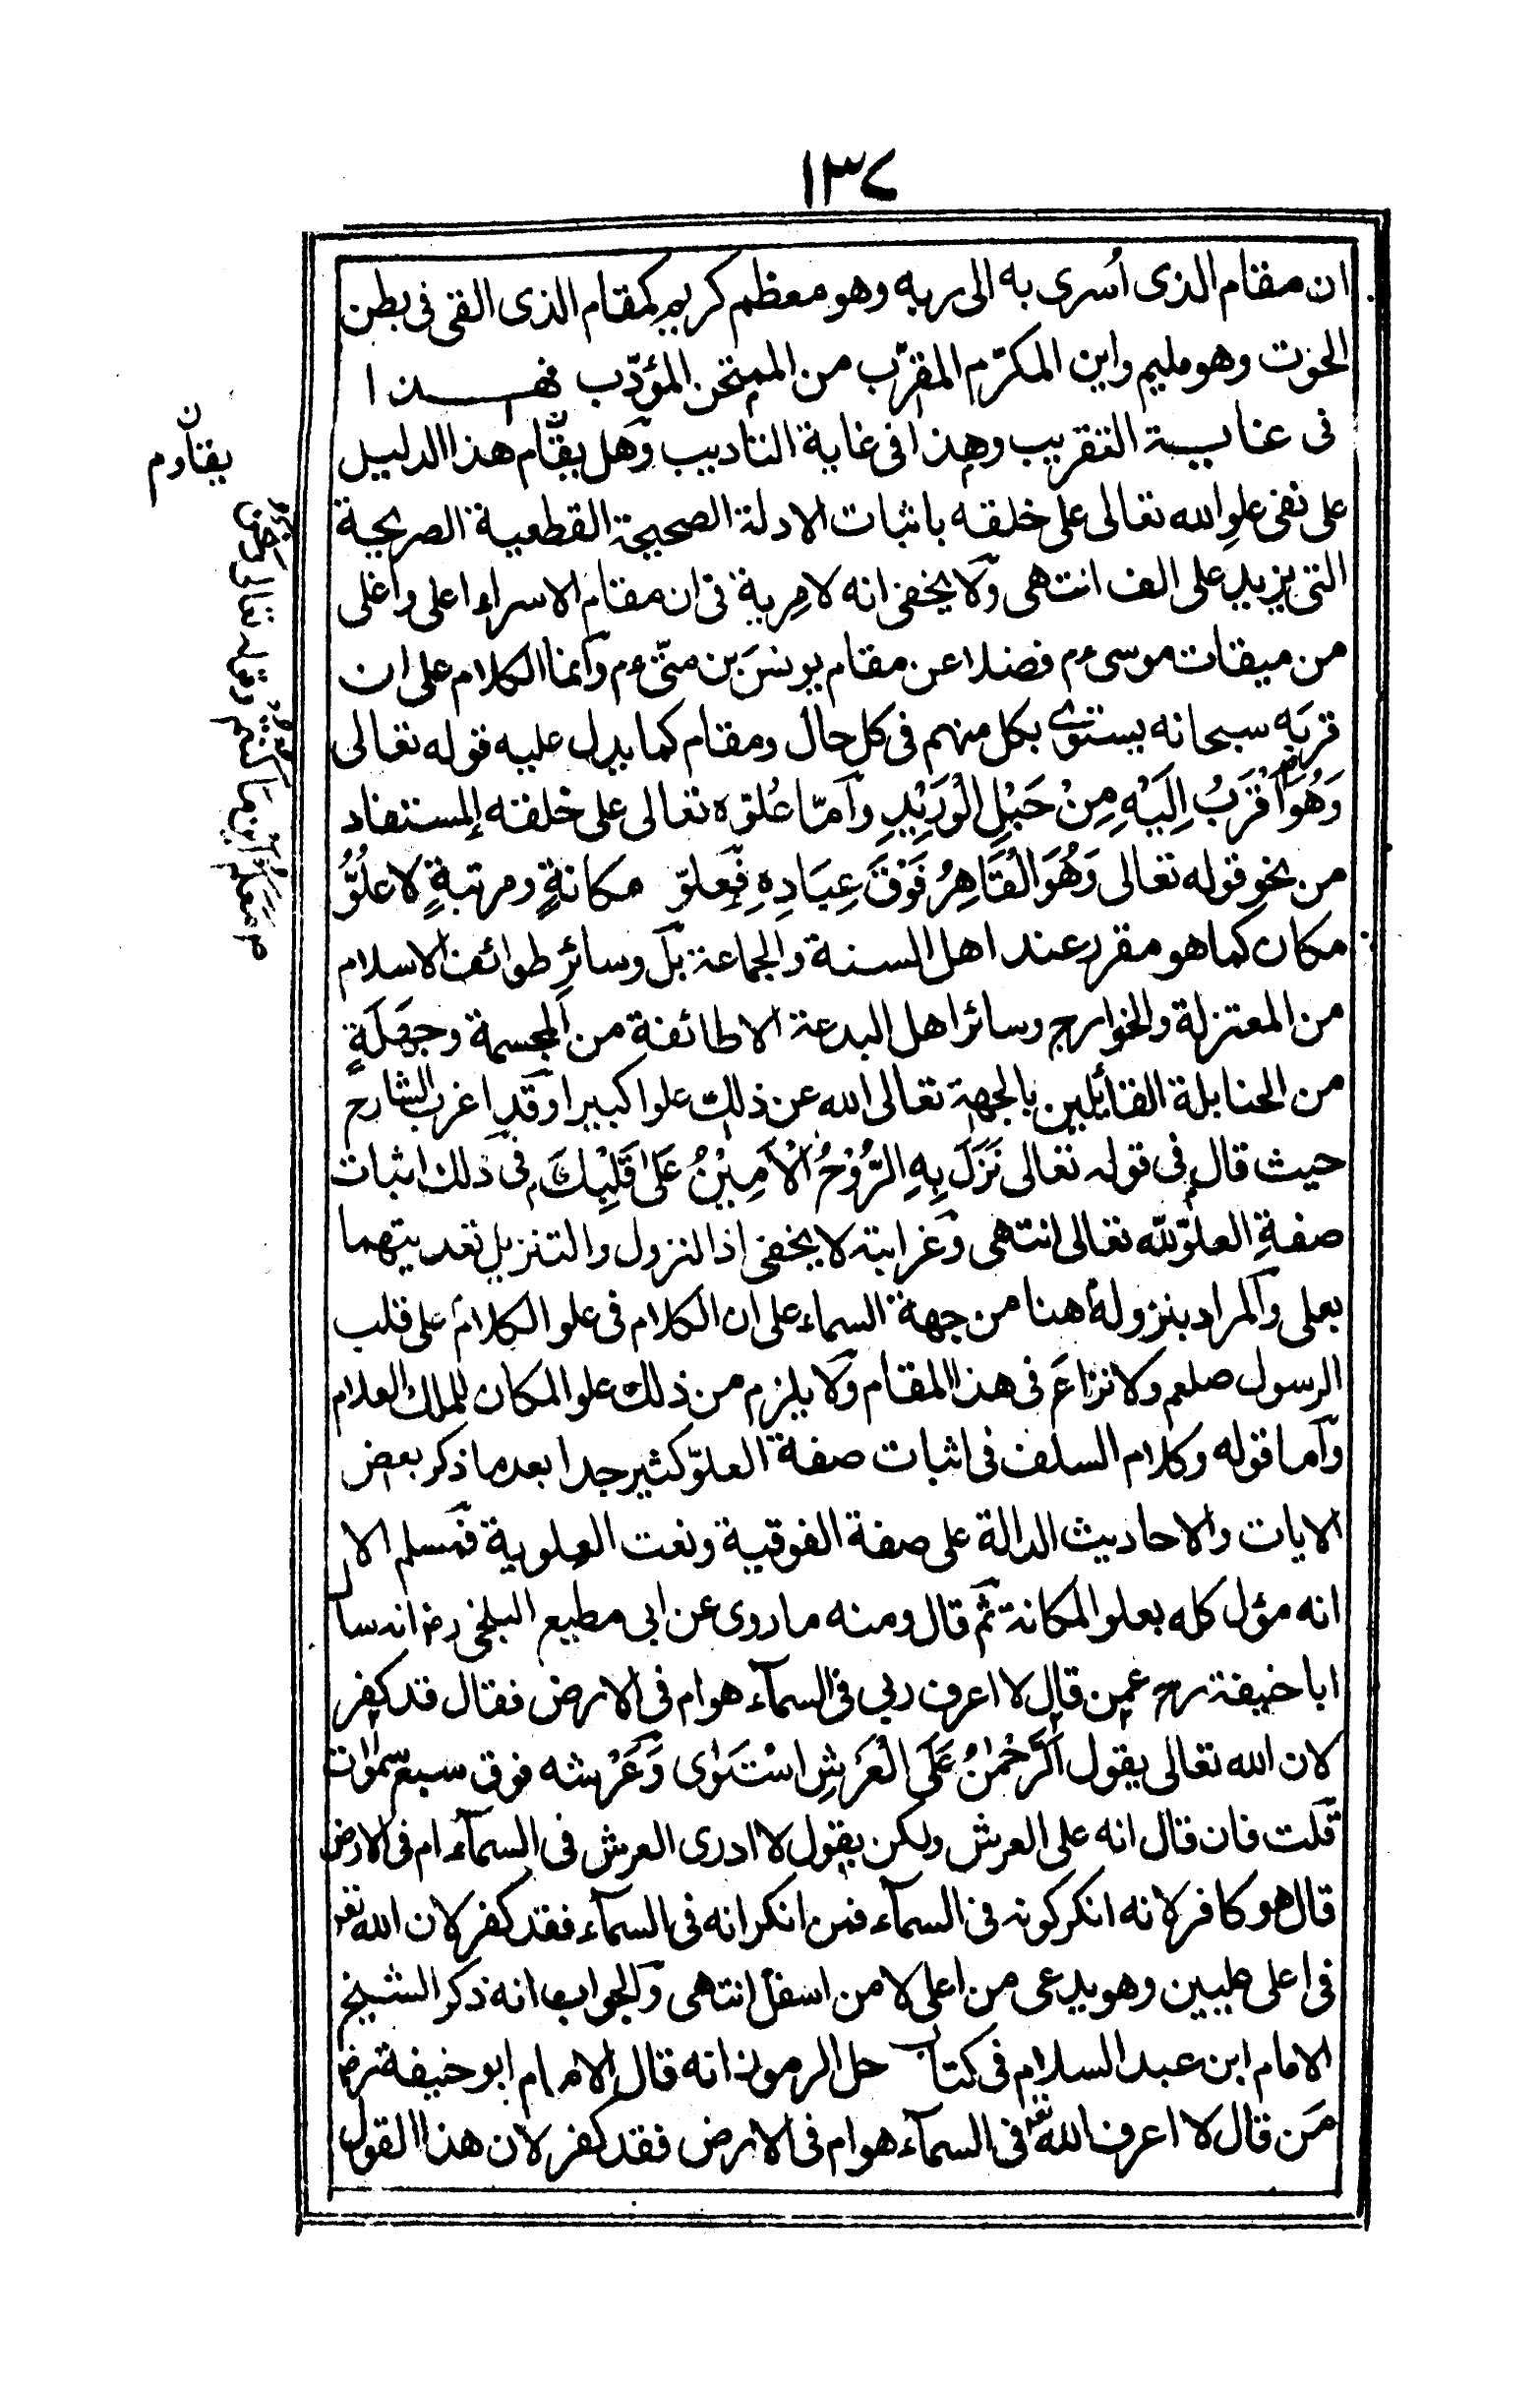 ١٣٧
ان مقام الذى اُسرى به الى ربه وهو معظم كريم كمقام الذى القى فى بطن
الحوت وهو مليم واين المكرّم المقرّب من الممتحن المؤدّب فهذا
فى غاية التقريب وهذا فى غاية التاديب وهل يقام هذا الدليل
على نفى علو الله تعالى على خلقه باثبات الادلة الصحيحة القطعية الصريحة
التى يزيد على الف انتهى ولا يخفى انه لا مرية فى ان مقام الاسراء اعلى واغلى
من ميقات موسى ءم فضلا عن مقام يونس بن متّى ءم وانما الكلام على ان
قربه سبحانه يستوى بكل منهم فى كل حال ومقام كما يدل عليه قوله تعالى
وَهُوَ اَقْرَبُ اِلَيْهِ مِنْ حَبْلِ الْوَرِيْدِ وامّا عُلوّه تعالى على خلقه المستفاد
من نحو قوله تعالى وَهُوَ الْقَاهِرُ فَوْقَ عِبَادِهِ فعلوّ مكانةٍ ومرتبةٍ لا علوُّ
مكان كما هو مقرر عند اهل السنة والجماعة بل وسائر طوائف الاسلام
من المعتزلة والخوارج وسائر اهل البدعة الا طائفة من المجسمة وجهلةٍ
من الحنابلة القائلين بالجهة تعالى الله عن ذلك علوا كبيرا وقد اغرب الشارح
حيث قال فى قوله تعالى نَزَلَ بِهِ الرُّوْحُ الْاَمِيْنُ عَلٰى قَلْبِكَ فى ذلك اثبات
صفةِ العلوّ لله تعالى انتهى وغرابته لا يخفى اذ النزول والتنزيل تعديتهما
بعلى والمراد بنزوله هنا من جهة السماء على ان الكلام فى علو الكلام على قلب
الرسول صلعم ولا نزاع فى هذا المقام ولا يلزم من ذلك علو المكان للملك العلام
واما قوله وكلام السلف فى اثبات صفة العلوّ كثير جدا بعد ما ذكر بعض
الايات والاحاديث الدالة على صفة الفوقية ونعت العلوية فمسلم الا
انه مؤل كله بعلو المكانة ثم قال ومنه ما روى عن ابى مطيع البلخى رض انه سال
ابا حنيفة رح عمن قال لا اعرف ربى فى السمآء هو ام فى الارض فقال قد كفر
لان الله تعالى يقول اَلرَّحْمٰنُ عَلَى الْعَرْشِ اسْتَوٰى وَعَرْشه فوق سبع سمٰوات
قلت فان قال انه على العرش ولكن يقول لا ادرى العرش فى السمآء ام فى الارض
قال هو كافر لانه انكر كونه فى السمآء فمن انكر انه فى السمآء فقد كفر لان الله تعه
فى اعلى عليين وهو يدعى من اعلى لا من اسفل انتهى والجواب انه ذكر الشيخ
الامام ابن عبد السلام فى كتاب حل الرموز انه قال الامام ابو حنيفة رض
مَن قال لا اعرف الله تعه افى السمآء هو ام فى الارض فقد كفر لان هذا القول
ن
يقاوم
وقوله تعالى وَهُوَ مَعَكُمْ اَيْنَمَا كُنْتُمْ